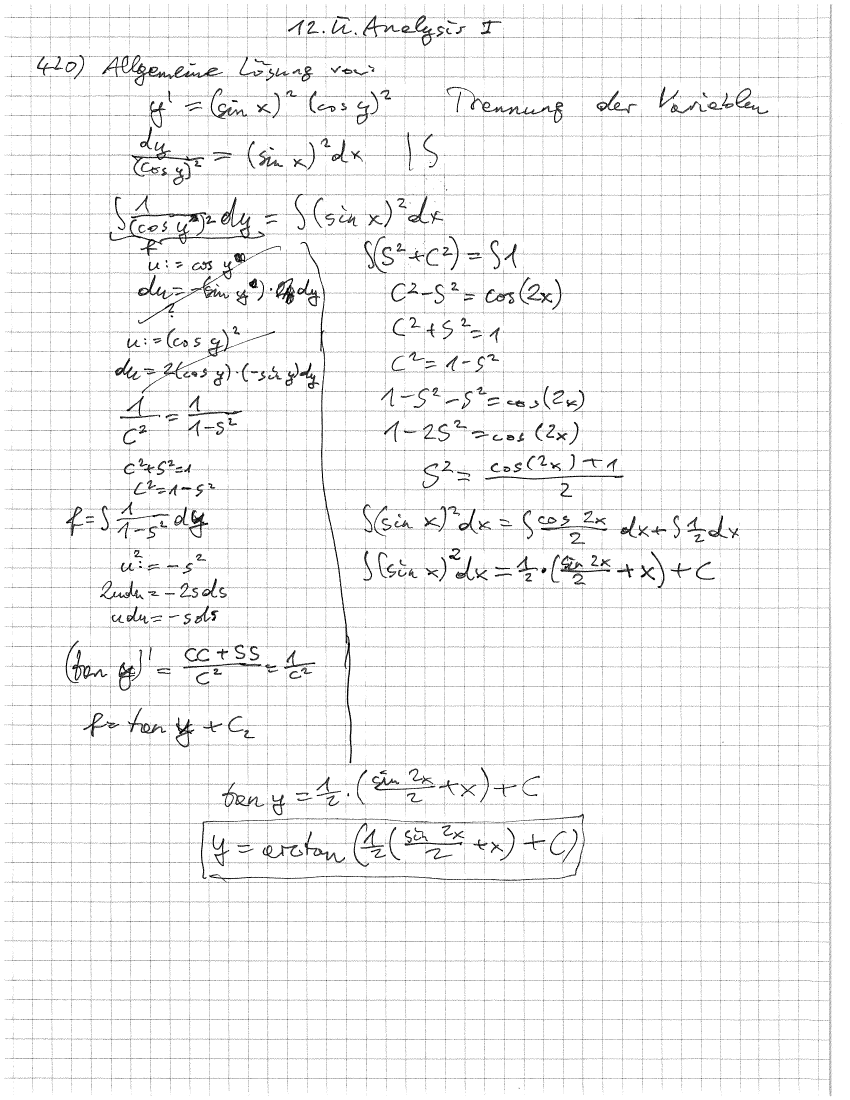 12. Ü. Analysis I
420) Allgemeine Lösung von:
y' = (sin x)² (cos y)² Trennung der Variablen
dy/(cos y)² = (sin x)² dx | ∫
∫ 1/(cos y)² dy = ∫(sin x)² dx
f
u := cos y
du = -(sin y) · dy
?
u := (cos y)²
du = 2(cos y)·(-sin y)dy
1/C² = 1/(1-S²)
C²+S²=1
C²=1-S²
f = ∫ 1/(1-S²) dy
u² := -s²
2udu = -2sds
udu = -sds
(tan y)' = (CC + SS)/C² = 1/C²
f = tan y + C₂
∫(S² + C²) = ∫1
C² - S² = cos(2x)
C² + S² = 1
C² = 1 - S²
1 - S² - S² = cos(2x)
1 - 2S² = cos(2x)
S² = (cos(2x) + 1)/2
∫(sin x)² dx = ∫ cos 2x/2 dx + ∫ 1/2 dx
∫(sin x)² dx = 1/2 · (sin 2x/2 + x) + C
tan y = 1/2 · (sin 2x/2 + x) + C
y = arctan (1/2 (sin 2x/2 + x) + C)